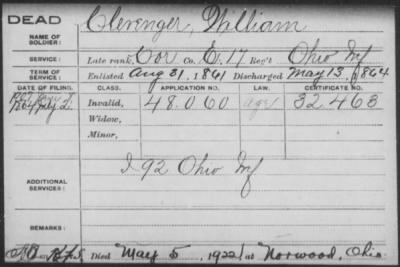 DEAD
NAME OF SOLDIER: Clevenger, William
SERVICE: Late rank, Cor Co. E, 17 Reg't Ohio Inf
TERM OF SERVICE: Enlisted Aug 31, 1861 Discharged May 13, 1864
DATE OF FILING. CLASS. APPLICATION NO. LAW. CERTIFICATE NO.
Invalid, 48.060 age 32.468
Widow,
Minor,
ADDITIONAL SERVICES: I 92 Ohio Inf
REMARKS:
Died May 5, 1922 at Norwood, Ohio.